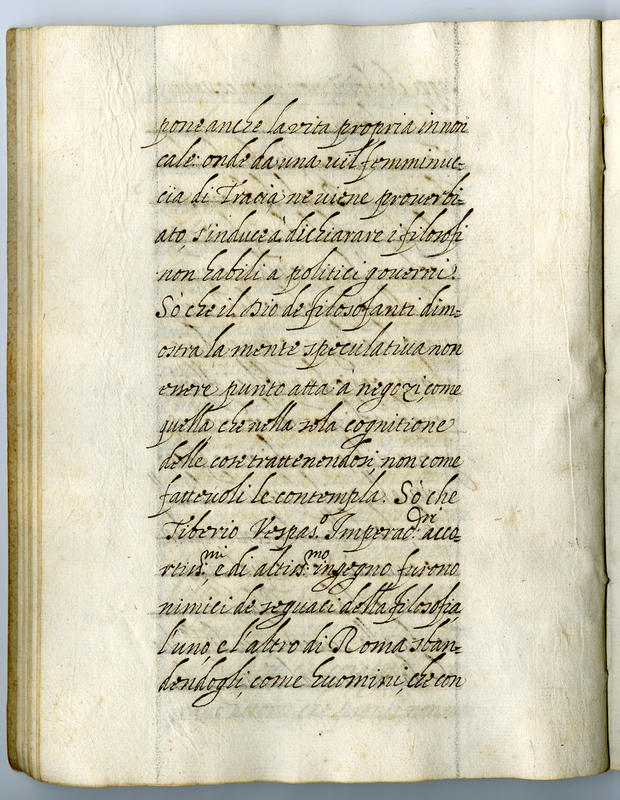 pone anche la vita propria in non
cale: onde da una vil femminuc=
cia di Tracia ne viene proverbi=
ato, s'induce à dichiarare i filosofi
non habili à politici governi.
Sò che il Dio de filosofanti dim=
ostra la mente speculativa non
essere punto atta à negozi, come
quella che nella sola cognitione
delle cose trattenendosi, non come
fattevoli le contempla. Sò che
Tiberio Vespas.o Imperad.ri acco=
rtiss.mi e di altiss.mo ingegno furono
nimici de seguaci della filosofia,
l'uno, e l'altro di Roma sban=
dendogli come huomini, che con